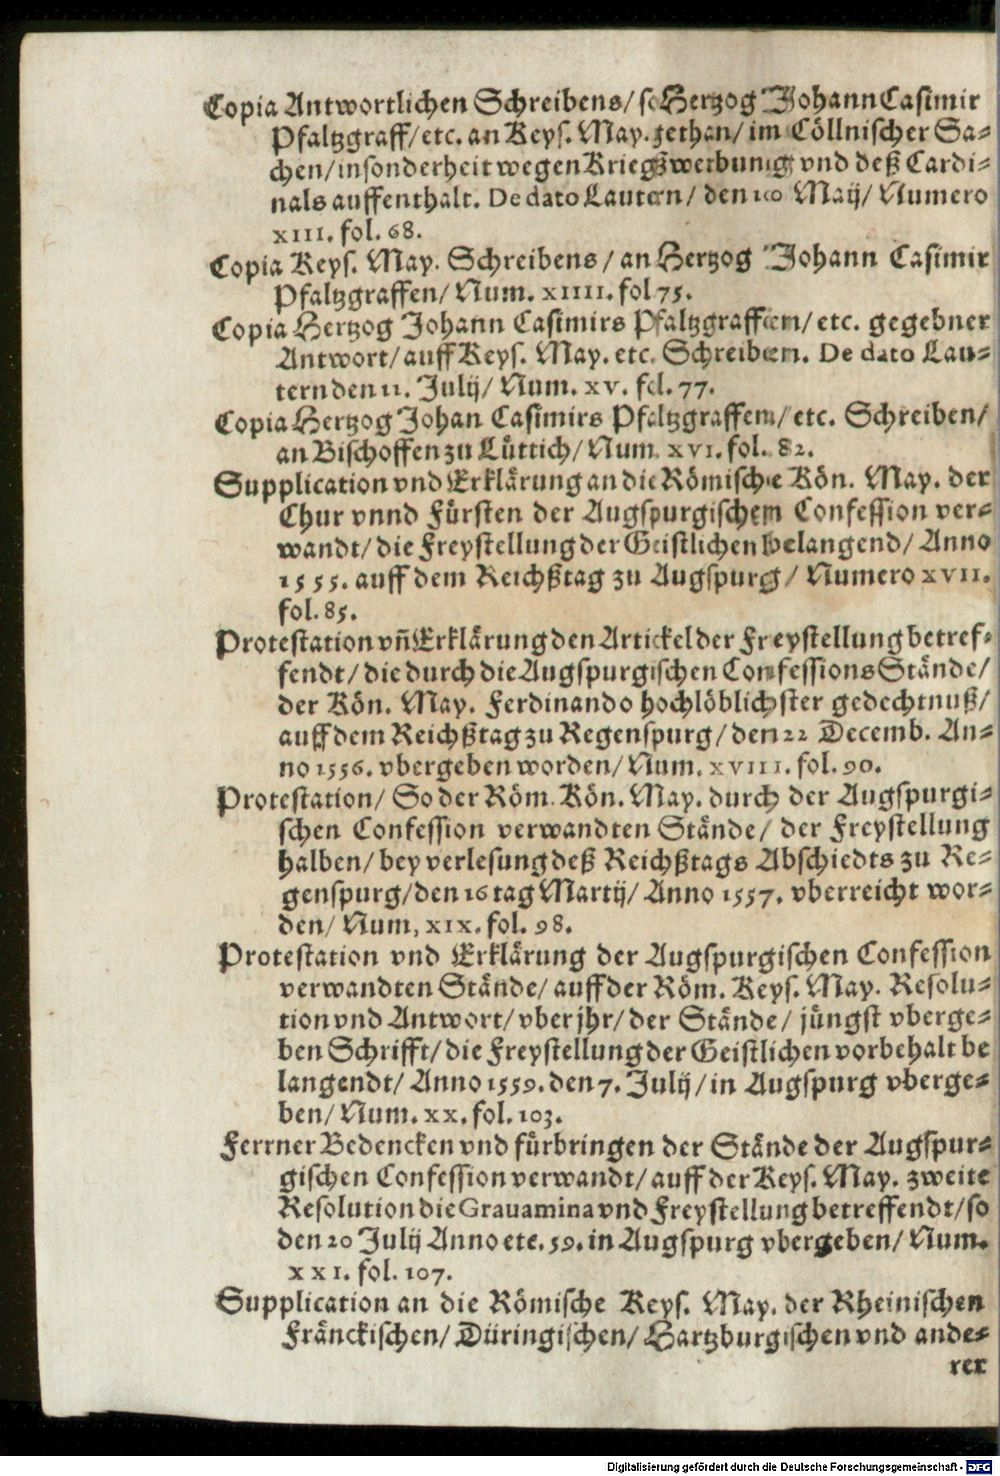 Copia Antwortlichen Schreibens/ so Hertzog Johann Casimir
Pfaltzgraff/ etc. an Keys. May. gethan/ im Cöllnischer Sa⸗
chen/ insonderheit wegen Kriegßwerbung vnd deß Cardi⸗
nals auffenthalt. De dato Lautern/ den Maij/ Numero
XIII. fol. 68.
Copia Keys. May. Schreibens/ an Hertzog Johann Casimir
Pfaltzgraffen/ Num. XIIII. fol 75.
Copia Hertzog Johann Casimirs Pfaltzgraffen/ etc. gegebner
Antwort/ auff Keys. May. etc. Schreiben. De dato Lau⸗
tern den 11. Julij/ Num. XV. fol. 77.
Copia Hertzog Johan Casimirs Pfaltzgraffen/ etc. Schreiben/
an Bischoffen zu Lüttich/ Num. XVI. fol. 82.
Supplication vnd Erklärung an die Römische Kön. May. der
Chur vnnd Fürsten der Augspurgischen Confession ver⸗
wandt/ die Freystellung der Geistlichen belangend/ Anno
1555. auff dem Reichßtag zu Augspurg/ Numero XVII.
fol. 85.
Protestation vñ Erklärung den Artickel der Freystellung betref⸗
fendt/ die durch die Augspurgischen Confessions Stände/
der Kön. May. Ferdinando hochlöblichster gedechtnuß/
auff dem Reichßtag zu Regenspurg/ den 22 Decemb. An⸗
no 1556. vbergeben worden/ Num. XVIII. fol. 90.
Protestation/ So der Röm. Kön. May. durch der Augspurgi⸗
schen Confession verwandten Stände/ der Freystellung
halben/ bey verlesung deß Reichßtags Abschiedts zu Re⸗
genspurg/ den 16 tag Martij/ Anno 1557. vberreicht wor⸗
den/ Num, XIX. fol. 98.
Protestation vnd Erklärung der Augspurgischen Confession
verwandten Stände/ auff der Röm. Keys. May. Resolu⸗
tion vnd Antwort/ vber jhr/ der Stände/ jüngst vberge⸗
ben Schrifft/ die Freystellung der Geistlichen vorbehalt be
langendt/ Anno 1559. den 7. Julij/ in Augspurg vberge⸗
ben/ Num. XX. fol. 103.
Ferrner Bedencken vnd fürbringen der Stände der Augspur⸗
gischen Confession verwandt/ auff der Keys. May. zweite
Resolution die Grauamina vnd Freystellung betreffendt/ so
den 20 Julij Anno etc. 59. in Augspurg vbergeben/ Num.
XXI. fol. 107.
Supplication an die Römische Keys. May. der Rheinischen
Fränckischen/ Düringischen/ Hartzburgischen vnd ande⸗
rer
Digitalisierung gefördert durch die Deutsche Forschungsgemeinschaft - DFG